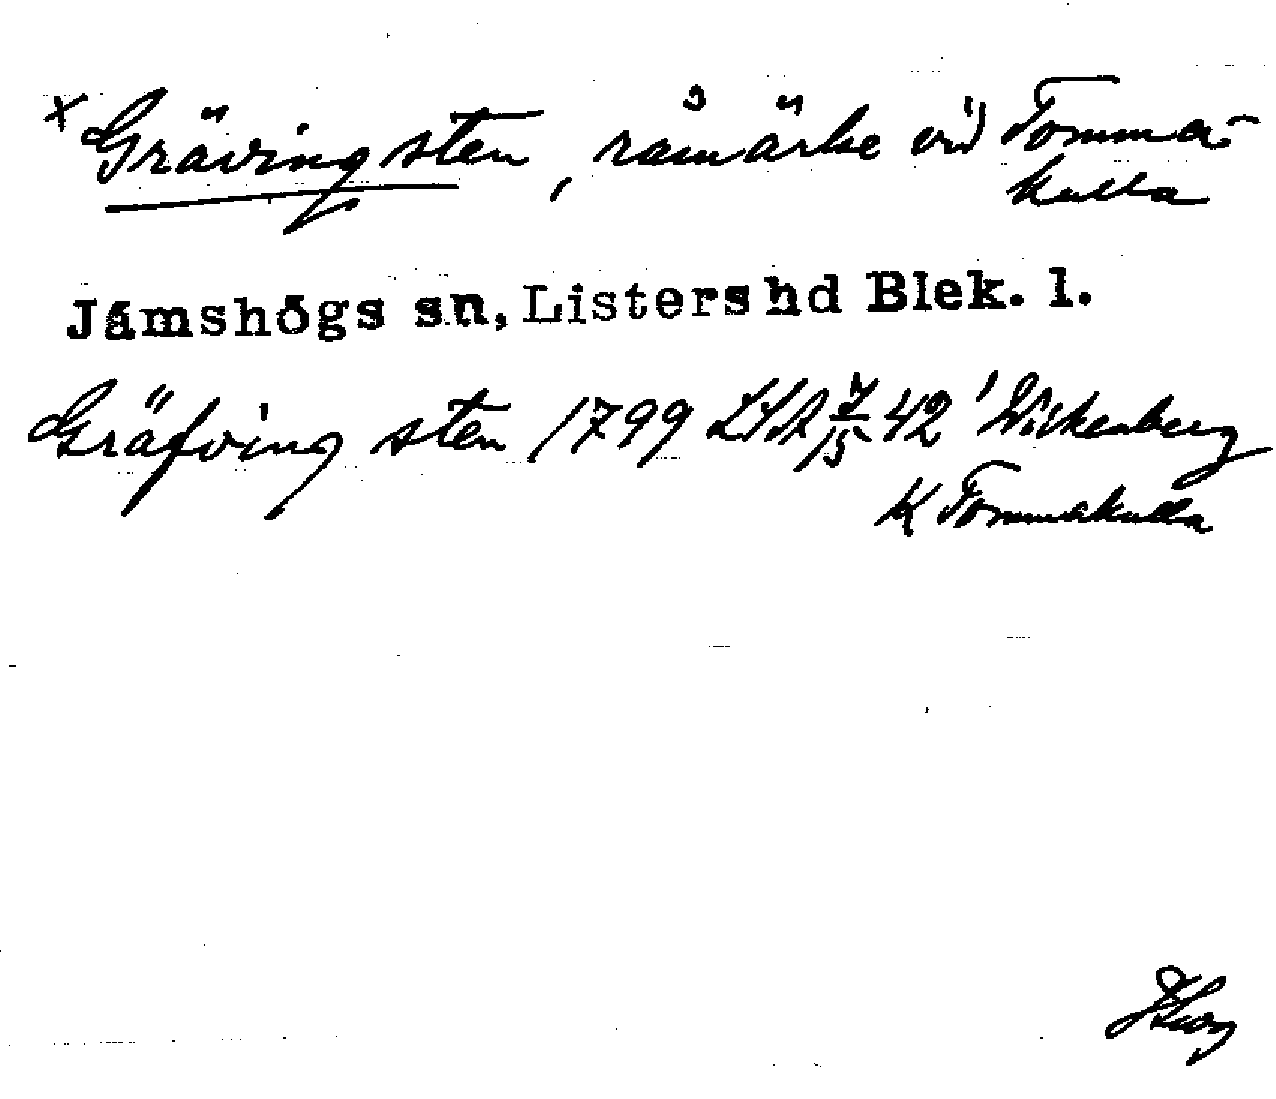 x Grävingsten, råmärke vid Tomma-
kulla
Jämshögs sn, Listers hd Blek. l.
Gräfving sten 1799 LSA 7/15 42 Wickenberg
K Tommakulla